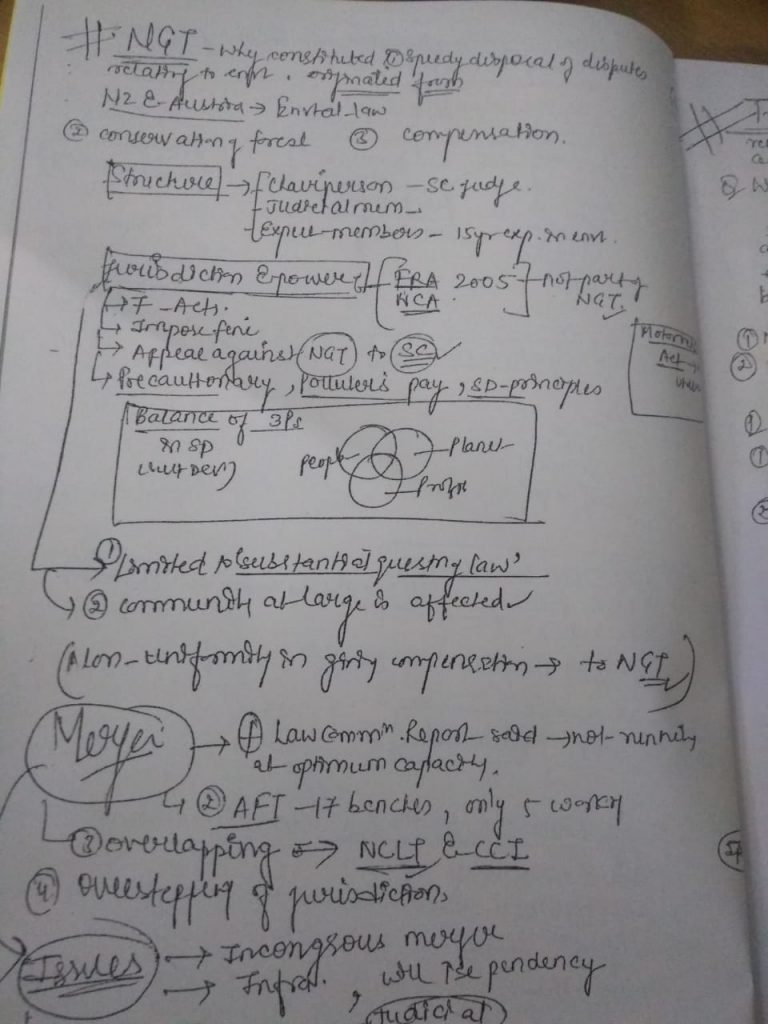 # NGT - why constituted ① speedy disposal of disputes
relating to envt. originated from
NZ & Austria → Envtal law
② conservation of forest ③ compensation.
Structure → Chairperson - SC judge.
- Judicial mem
- Expert-members - 15yr exp. in envt.
Jurisdiction & power - [FRA 2005 WCA] - not part of
NGT
→ 7 - Acts.
→ Impose fine
→ Appeal against NGT to SC
→ Precautionary, Polluters pay, SD-principles
Balance of 3Ps
in SD
People
Planet
Profit
① Limited to [substantial] question of law'
② community at large is affected
(Non-uniformity in giving compensation → to NGT)
Merger → ① Law Commn. Report said → not running
at optimum capacity.
② AFT - 17 benches, only 5 working
③ overlapping → NCLT & CCI
④ Overstepping of jurisdiction
Issues → Incongrous merger
→ Infra. , will ↑se pendency
Judicial
Motor
Act